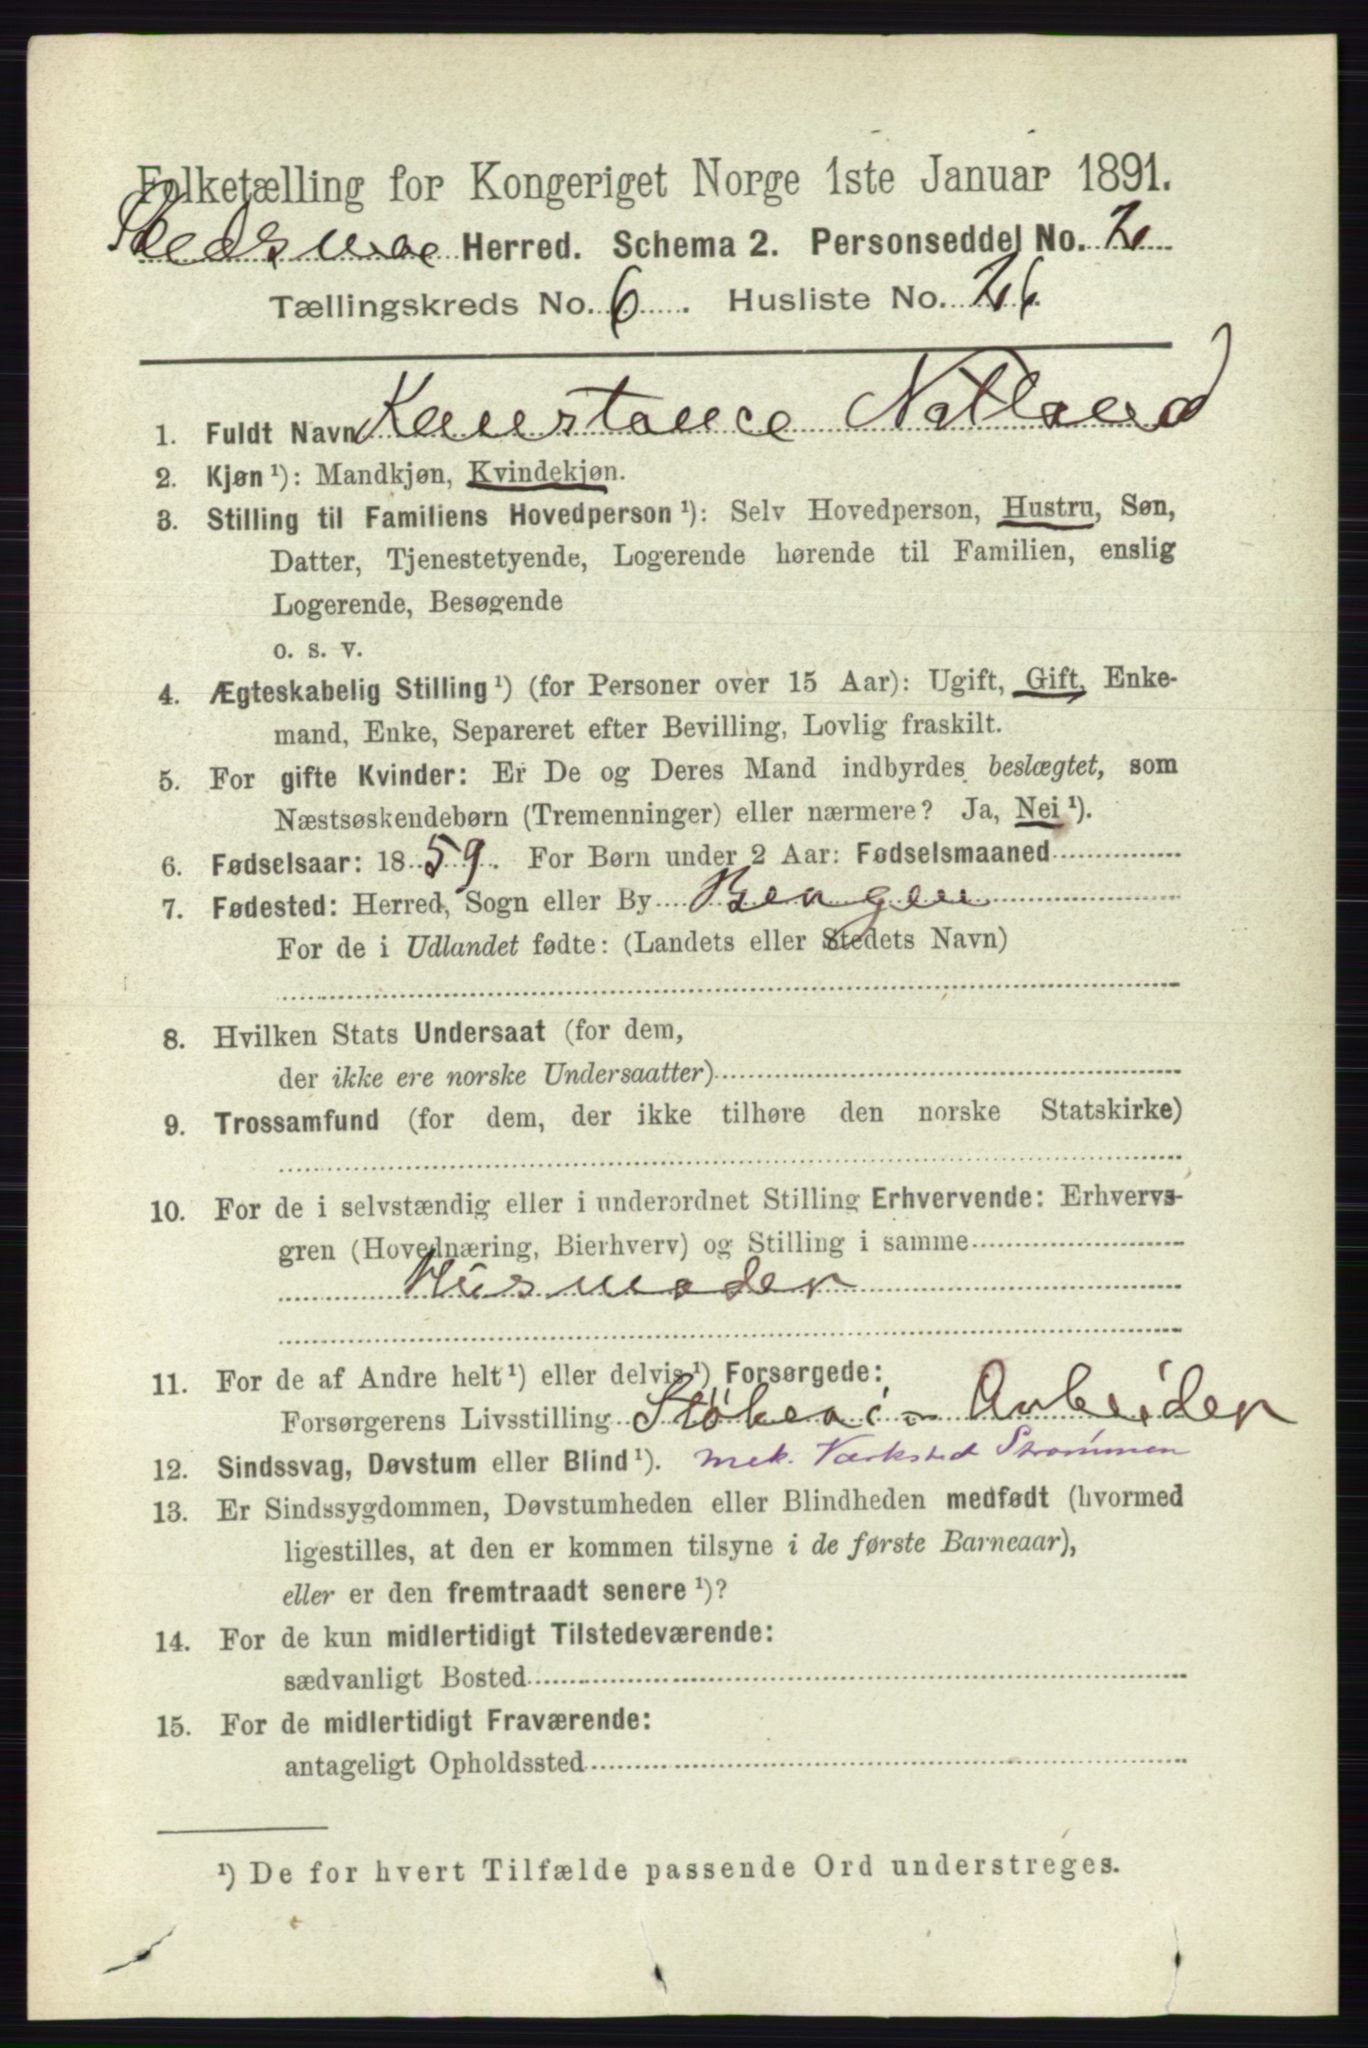 Folketælling for Kongeriget Norge 1ste Januar 1891.
Skedsmoe Herred. Schema 2. Personseddel No. 2
Tællingskreds No. 6. Husliste No. 26.
1. Fuldt Navn Kunstance Natland
2. Kjøn ¹): Mandkjøn, Kvindekjøn.
3. Stilling til Familiens Hovedperson ¹): Selv Hovedperson, Hustru, Søn,
Datter, Tjenestetyende, Logerende hørende til Familien, enslig
Logerende, Besøgende
o. s. v.
4. Ægteskabelig Stilling ¹) (for Personer over 15 Aar): Ugift, Gift, Enke-
mand, Enke, Separeret efter Bevilling, Lovlig fraskilt.
5. For gifte Kvinder: Er De og Deres Mand indbyrdes beslægtet, som
Næstsøskendebørn (Tremenninger) eller nærmere? Ja, Nei ¹).
6. Fødselsaar: 1859. For Børn under 2 Aar: Fødselsmaaned
7. Fødested: Herred, Sogn eller By Bergen
For de i Udlandet fødte: (Landets eller Stedets Navn)
8. Hvilken Stats Undersaat (for dem,
der ikke ere norske Undersaatter)
9. Trossamfund (for dem, der ikke tilhøre den norske Statskirke)
10. For de i selvstændig eller i underordnet Stilling Erhvervende: Erhvervs-
gren (Hovednæring, Bierhverv) og Stilling i samme
Husmoder
11. For de af Andre helt ¹) eller delvis ¹) Forsørgede:
Forsørgerens Livsstilling Stöberi-Arbeider
12. Sindssvag, Døvstum eller Blind ¹). mek. Værksted Strømmen
13. Er Sindssygdommen, Døvstumheden eller Blindheden medfødt (hvormed
ligestilles, at den er kommen tilsyne i de første Barneaar),
eller er den fremtraadt senere ¹)?
14. For de kun midlertidigt Tilstedeværende:
sædvanligt Bosted
15. For de midlertidigt Fraværende:
antageligt Opholdssted
¹) De for hvert Tilfælde passende Ord understreges.